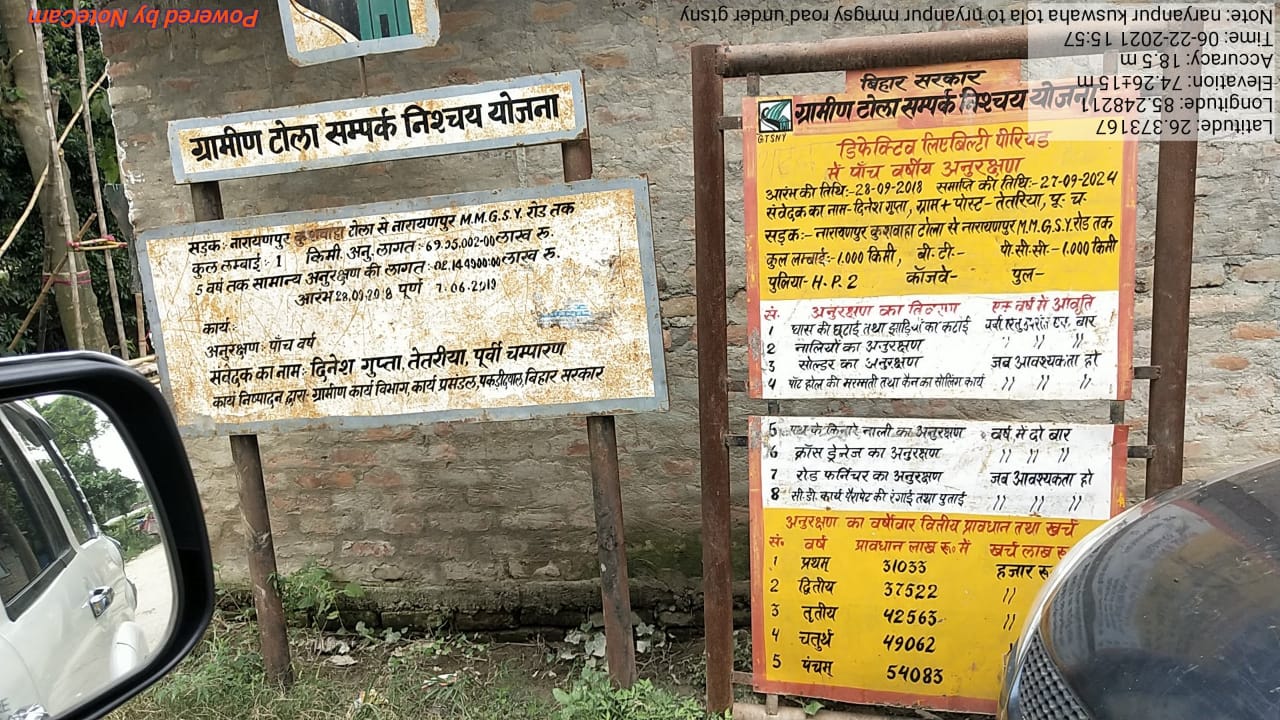 Powered by NoteCam
Note: naryanpur kuswaha tola to nryanpur mmgsy road under gtsny
Time: 06-22-2021 15:57
Accuracy: 18.5 m
Elevation: 74.26±15 m
Longitude: 85.248211
Latitude: 26.373167
ग्रामीण टोला सम्पर्क निश्चय योजना
सड़क: नारायणपुर कुशवाहा टोला से नारायणपुर M.M.G.S.Y. रोड तक
कुल लम्बाई: 1 किमी. अनु. लागत: 69.95.002-00 लाख रु.
5 वर्ष तक सामान्य अनुरक्षण की लागत: 02.144900:00 लाख रु.
आरंभ 28.09.20 8 पूर्ण 7.06.2019
कार्य:
अनुरक्षण: पाँच वर्ष
संवेदक का नाम: दिनेश गुप्ता, तेतरीया, पूर्वी चम्पारण
कार्य निष्पादन द्वारा- ग्रामीण कार्य विभाग, कार्य प्रमंडल, पकड़ीदयाल, बिहार सरकार
बिहार सरकार
GTSNY
ग्रामीण टोला सम्पर्क निश्चय योजना
डिफेक्टिव लिएबिल्टि पीरियड
में पाँच वर्षीय अनुरक्षण
आरंभ की तिथि:-28-09-2018 समाप्ति की तिथि:-27-09-2024
संवेदक का नाम-दिनेश गुप्ता, ग्राम+पोस्ट-तेतरिया, पू. च.
सड़क:- नारायणपुर कुशवाहा टोला से नारायणपुर M.M.G.S.Y. रोड तक
कुल लम्बाई:-1.000 किमी, बी. टी.- पी.सी.सी-1.000 किमी
पुलिया- H.P.2 कॉजवे- पुल-
सं. अनुरक्षण का विवरण एक वर्ष में आवृति
1 घास की छटाई तथा झाड़ियों का कटाई वर्षा ऋतु उपरांत एक बार
2 नालियों का अनुरक्षण '' '' ''
3 सोल्डर का अनुरक्षण जब आवश्यकता हो
4 पॉट होल की मरम्मती तथा कैन का सीलिंग कार्य '' '' ''
5 पथ के किनारे नाली का अनुरक्षण वर्ष में दो बार
6 क्रॉस ड्रेनेज का अनुरक्षण '' '' ''
7 रोड फर्निचर का अनुरक्षण जब आवश्यकता हो
8 सी.डी. कार्य पैरापेट की रंगाई तथा पुताई '' '' ''
अनुरक्षण का वर्षावार वितीय प्रावधान तथा खर्च
सं. वर्ष प्रावधान लाख रू० में खर्च लाख रू
1 प्रथम् 31033 हजार रू
2 द्वितीय 37522 ''
3 तृतीय 42563 ''
4 चतुर्थ 49062
5 पंचम् 54083